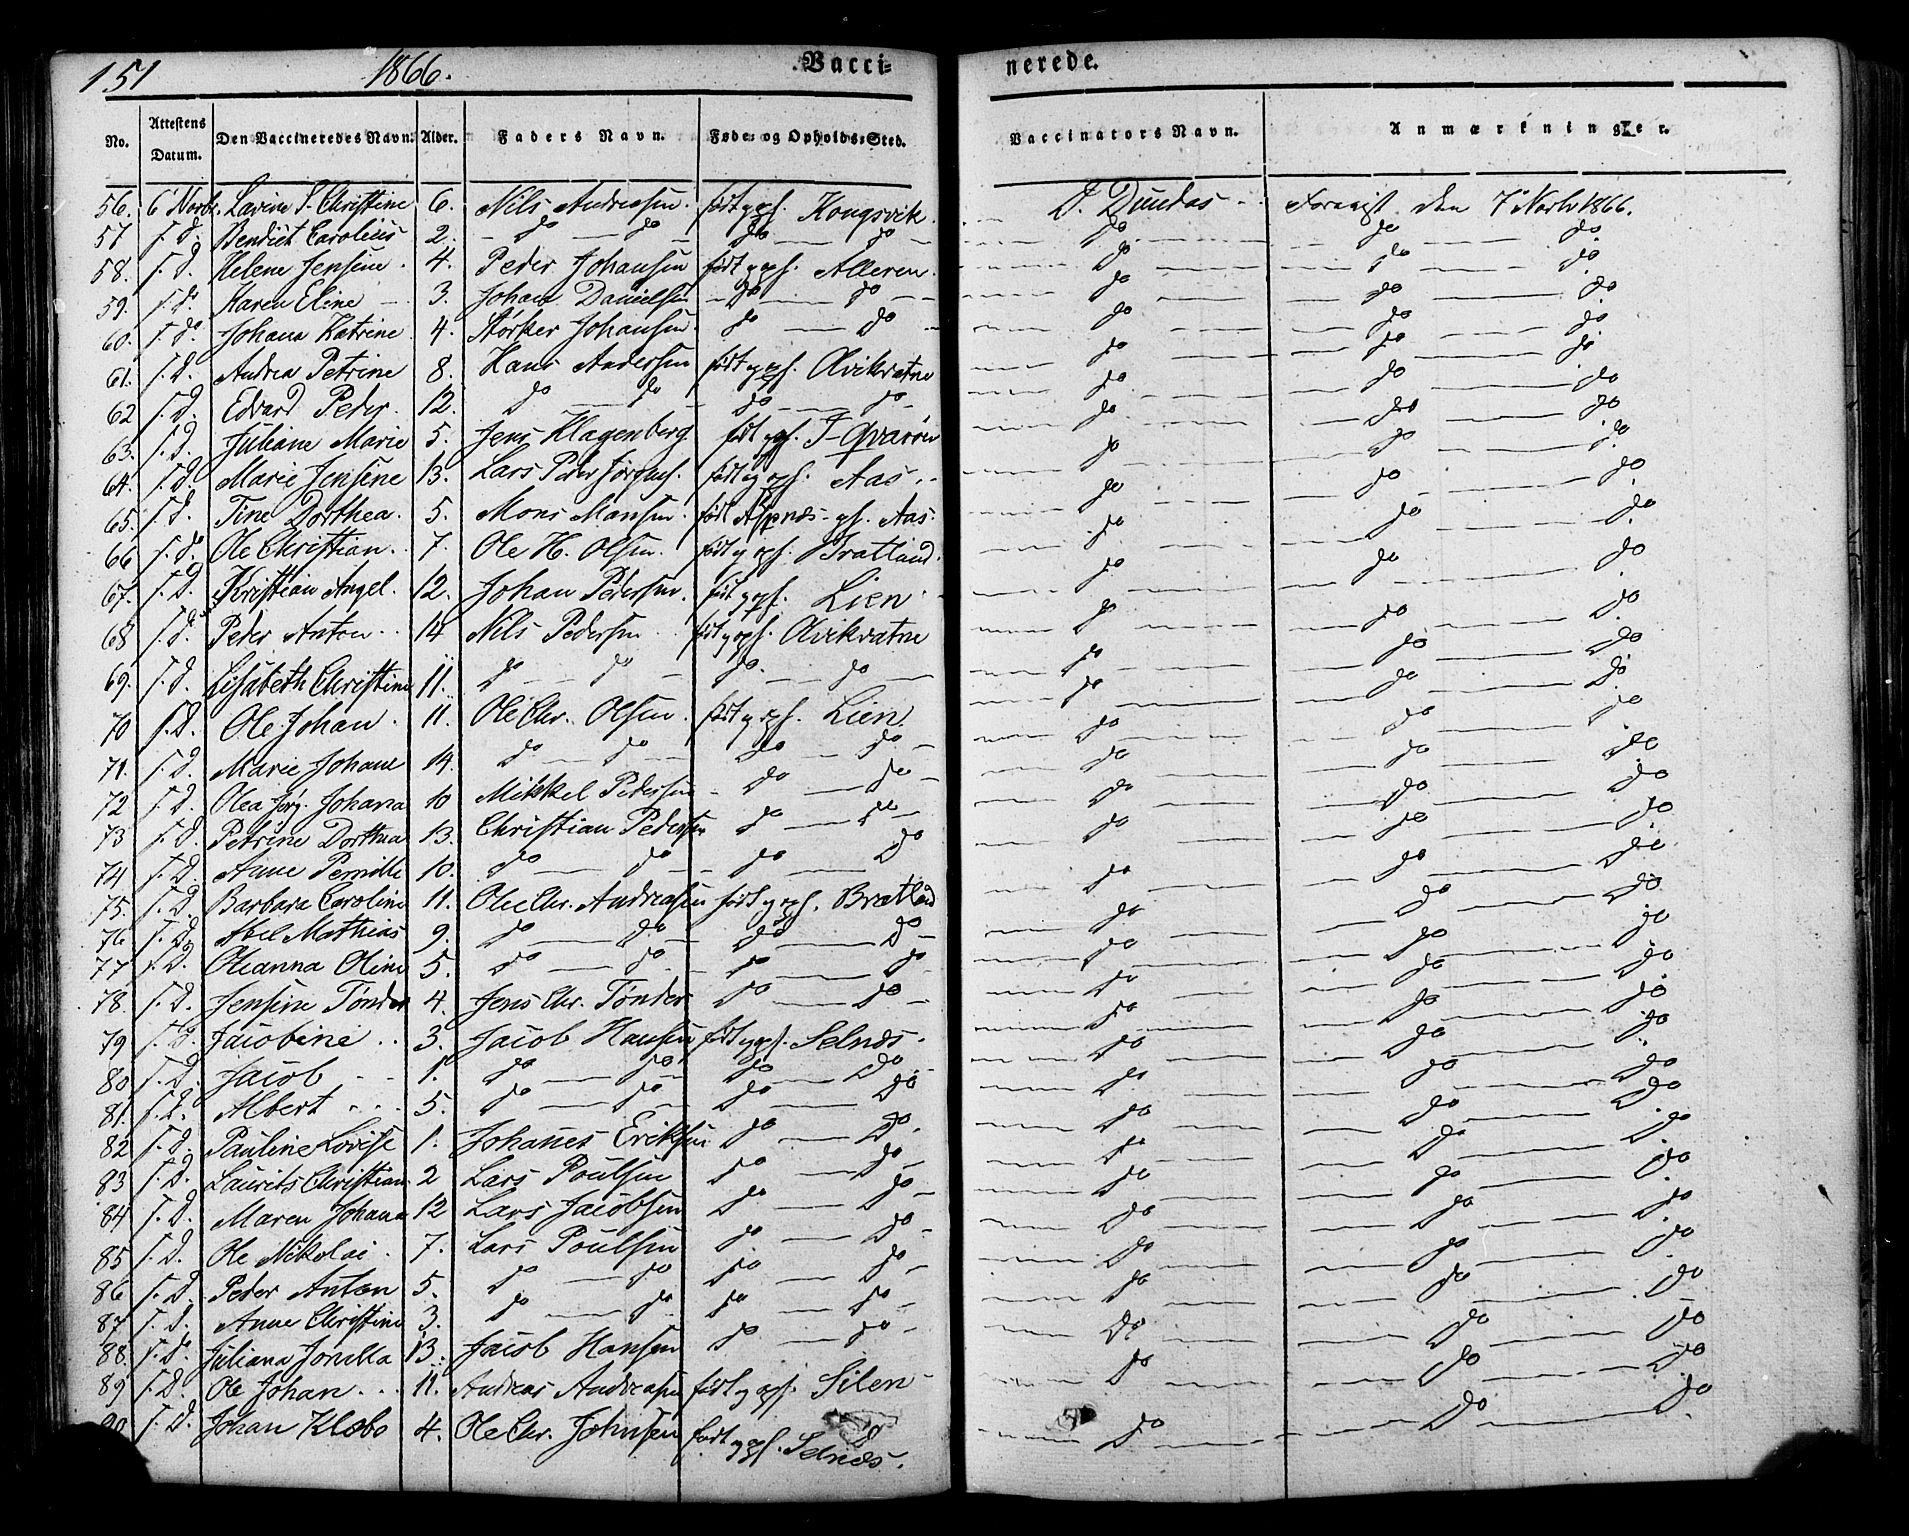 151 1866. Vacci= nerede.
No. Attestens Datum. Den Vaccineredes Navn. Alder. Faders Navn. Føde- og Opholds-Sted. Vaccinators Navn. Anmærkninger.
56. 6 Novbr. Lavine S. Christine 6. Nils Andreasen. født og opf. Kongsvik. D. Dundas Forevist den 7 Novbr 1866.
57 s. D. Bendict Carolius 2. do do do do do do do
58. s. D. Helene Jensine. 4. Peder Johansen født og opf. Alleren. do do do
59. s. do Karen Eline 3. Johan Danielsen do do do do do
60. s. do. Johana Katrine 4. Størker Johansen do do do do do
61. s. D. Andrea Petrine 8. Hans Andersen født og opf. Olvikvatne do do do
62 s. D. Edvard Peder. 12. do do do do do do do
63. s. D. Juliane Marie 5. Jens Klagenberg født og opf. I-Qvarøen do do do
64. s. D. Marie Jensine 13. Lars Peder Jørgens. født og opf. Aas do do do
65. s. D. Tine Dorthea. 5. Mons Monsen. født Alpnæs opf. Aas. do do do
66 s. do Ole Christian. 7. Ole H. Olsen. født og opf. Bratland. do do do
67. s. D. Kristian Angel. 12. Johan Pedersen. født og opf. Lien do do do
68 s. D. Peder Anton. 14 Nils Pedersen født og opf. Olvikvatne do do do
69. s. D. Lisabeth Christine 11. do do do. do do do do
70 s. D. Ole Johan. 11. Ole Chr. Olsen. født og opf. Lien. do do do
71. s. D. Marie Johane 14. do do do do do do do
72 s. D. Olea Jørg. Johana 10 Mikkel Pedersen do do do do do
73 s. D. Petrine Dorthea 13. Christian Pedersen do do do do do
74 s. D. Anne Pernille 10. do do do do do do do
75. s. D. Barbara Caroline 11. Ole Chr. Andreasen født og opf. Bratland do do do
76 s. D. Axel Mathias 9. do do do do do do do
77 s. D. Oleanna Oline 5. do do do do do do do
78. s. D. Jensine Tønder 4. Jens Chr. Tønder do do do do do
79 s. D. Jacobine 3. Jacob Hansen født og opf. Selnæs. do do do
80 s. D. Jacob 1. do do do do do do do
81. s. D. Albert 5. do do do do do do do
82 s. D. Pauline Lovise 1. Johanes Eriksen do do do do do
83 s. D. Laurits Christian 2 Lars Poulsen do do do do do
84 s. D. Maren Johana 12 Lars Jacobsen do do do do do
85 s. D. Ole Nikolai. 7. Lars Poulsen do do do do do
86 s. D. Peder Anton 5. do do do do do do do
87 s. D. Anne Christine 3. do do do do do do do
88. s. D. Juliana Jonilla 13. Jacob Hansen do do do do do
89 s. D. Ole Johan 11. Andreas Andreasen født og opf. Silen do do do
90 s. D. Johan Klæbo 4. Ole Chr. Johnsen født og opf. Selnæs. do do do